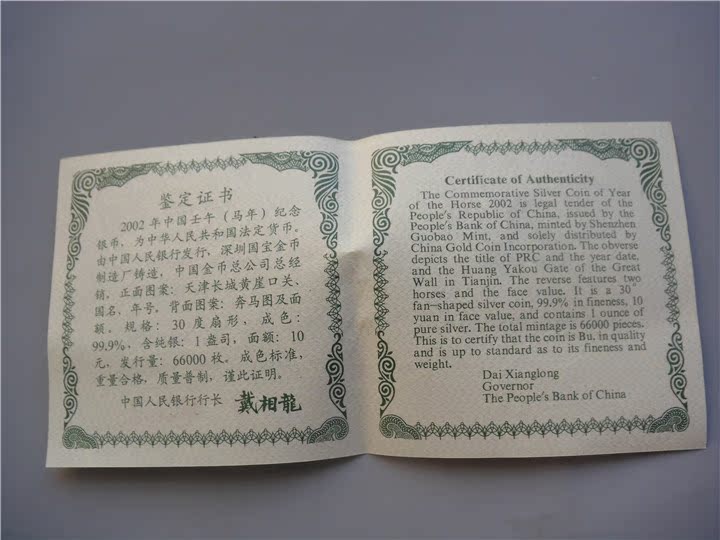 鉴定证书
2002年中国壬午（马年）纪念
银币，为中华人民共和国法定货币。
由中国人民银行发行，深圳国宝金币
制造厂铸造，中国金币总公司总经
销，正面图案：天津长城黄崖口关、
国名，年号。背面图案：奔马图及面
额。规格：30度扇形，成色：
99.9%，含纯银：1盎司，面额：10
元，发行量：66000枚。成色标准，
重量合格，质量普制，谨此证明。
中国人民银行行长 戴相龍
Certificate of Authenticity
The Commemorative Silver Coin of Year
of the Horse 2002 is legal tender of the
People's Republic of China, issued by the
People's Bank of China, minted by Shenzhen
Guobao Mint, and solely distributed by
China Gold Coin Incorporation. The obverse
depicts the title of PRC and the year date,
and the Huang Yakou Gate of the Great
Wall in Tianjin. The reverse features two
horses and the face value. It is a 30°
fan-shaped silver coin, 99.9% in fineness, 10
yuan in face value, and contains 1 ounce of
pure silver. The total mintage is 66000 pieces.
This is to certify that the coin is Bu. in quality
and is up to standard as to its fineness and
weight.
Dai Xianglong
Governor
The People's Bank of China